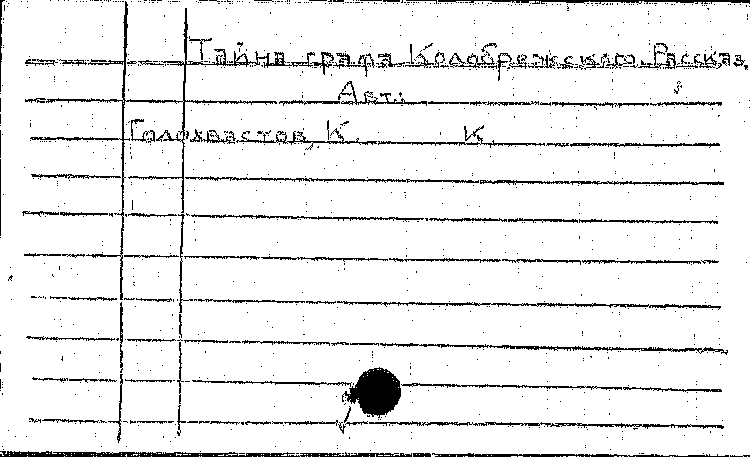 Тайна графа Колобрежского. Рассказ.
Авт.:
Голохвастов, К. К.